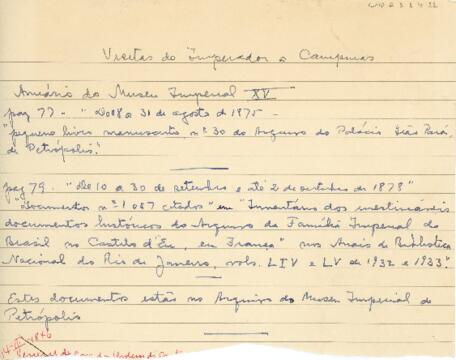 Visitas do Imperador a Campinas
Anuário do Museu Imperial XV
pag 77 - "Do 18 a 31 de agosto de 1875 -
"pequeno livro manuscrito nº 30 do Arquivo do Palácio Grão Pará,
de Petrópolis".
pag 79. "De 10 a 30 de setembro e até 2 de outubro de 1878"
"Documentos nº 1087 citados" em "Inventário dos inestimáveis
documentos históricos do Arquivo da Família Imperial do
Brasil no Castelo d'Eu, em França" nos Anais da Biblioteca
Nacional do Rio de Janeiro, vols. LIV e LV de 1932 e 1933".
Estes documentos estão no Arquivo do Museu Imperial de
Petrópolis
1846